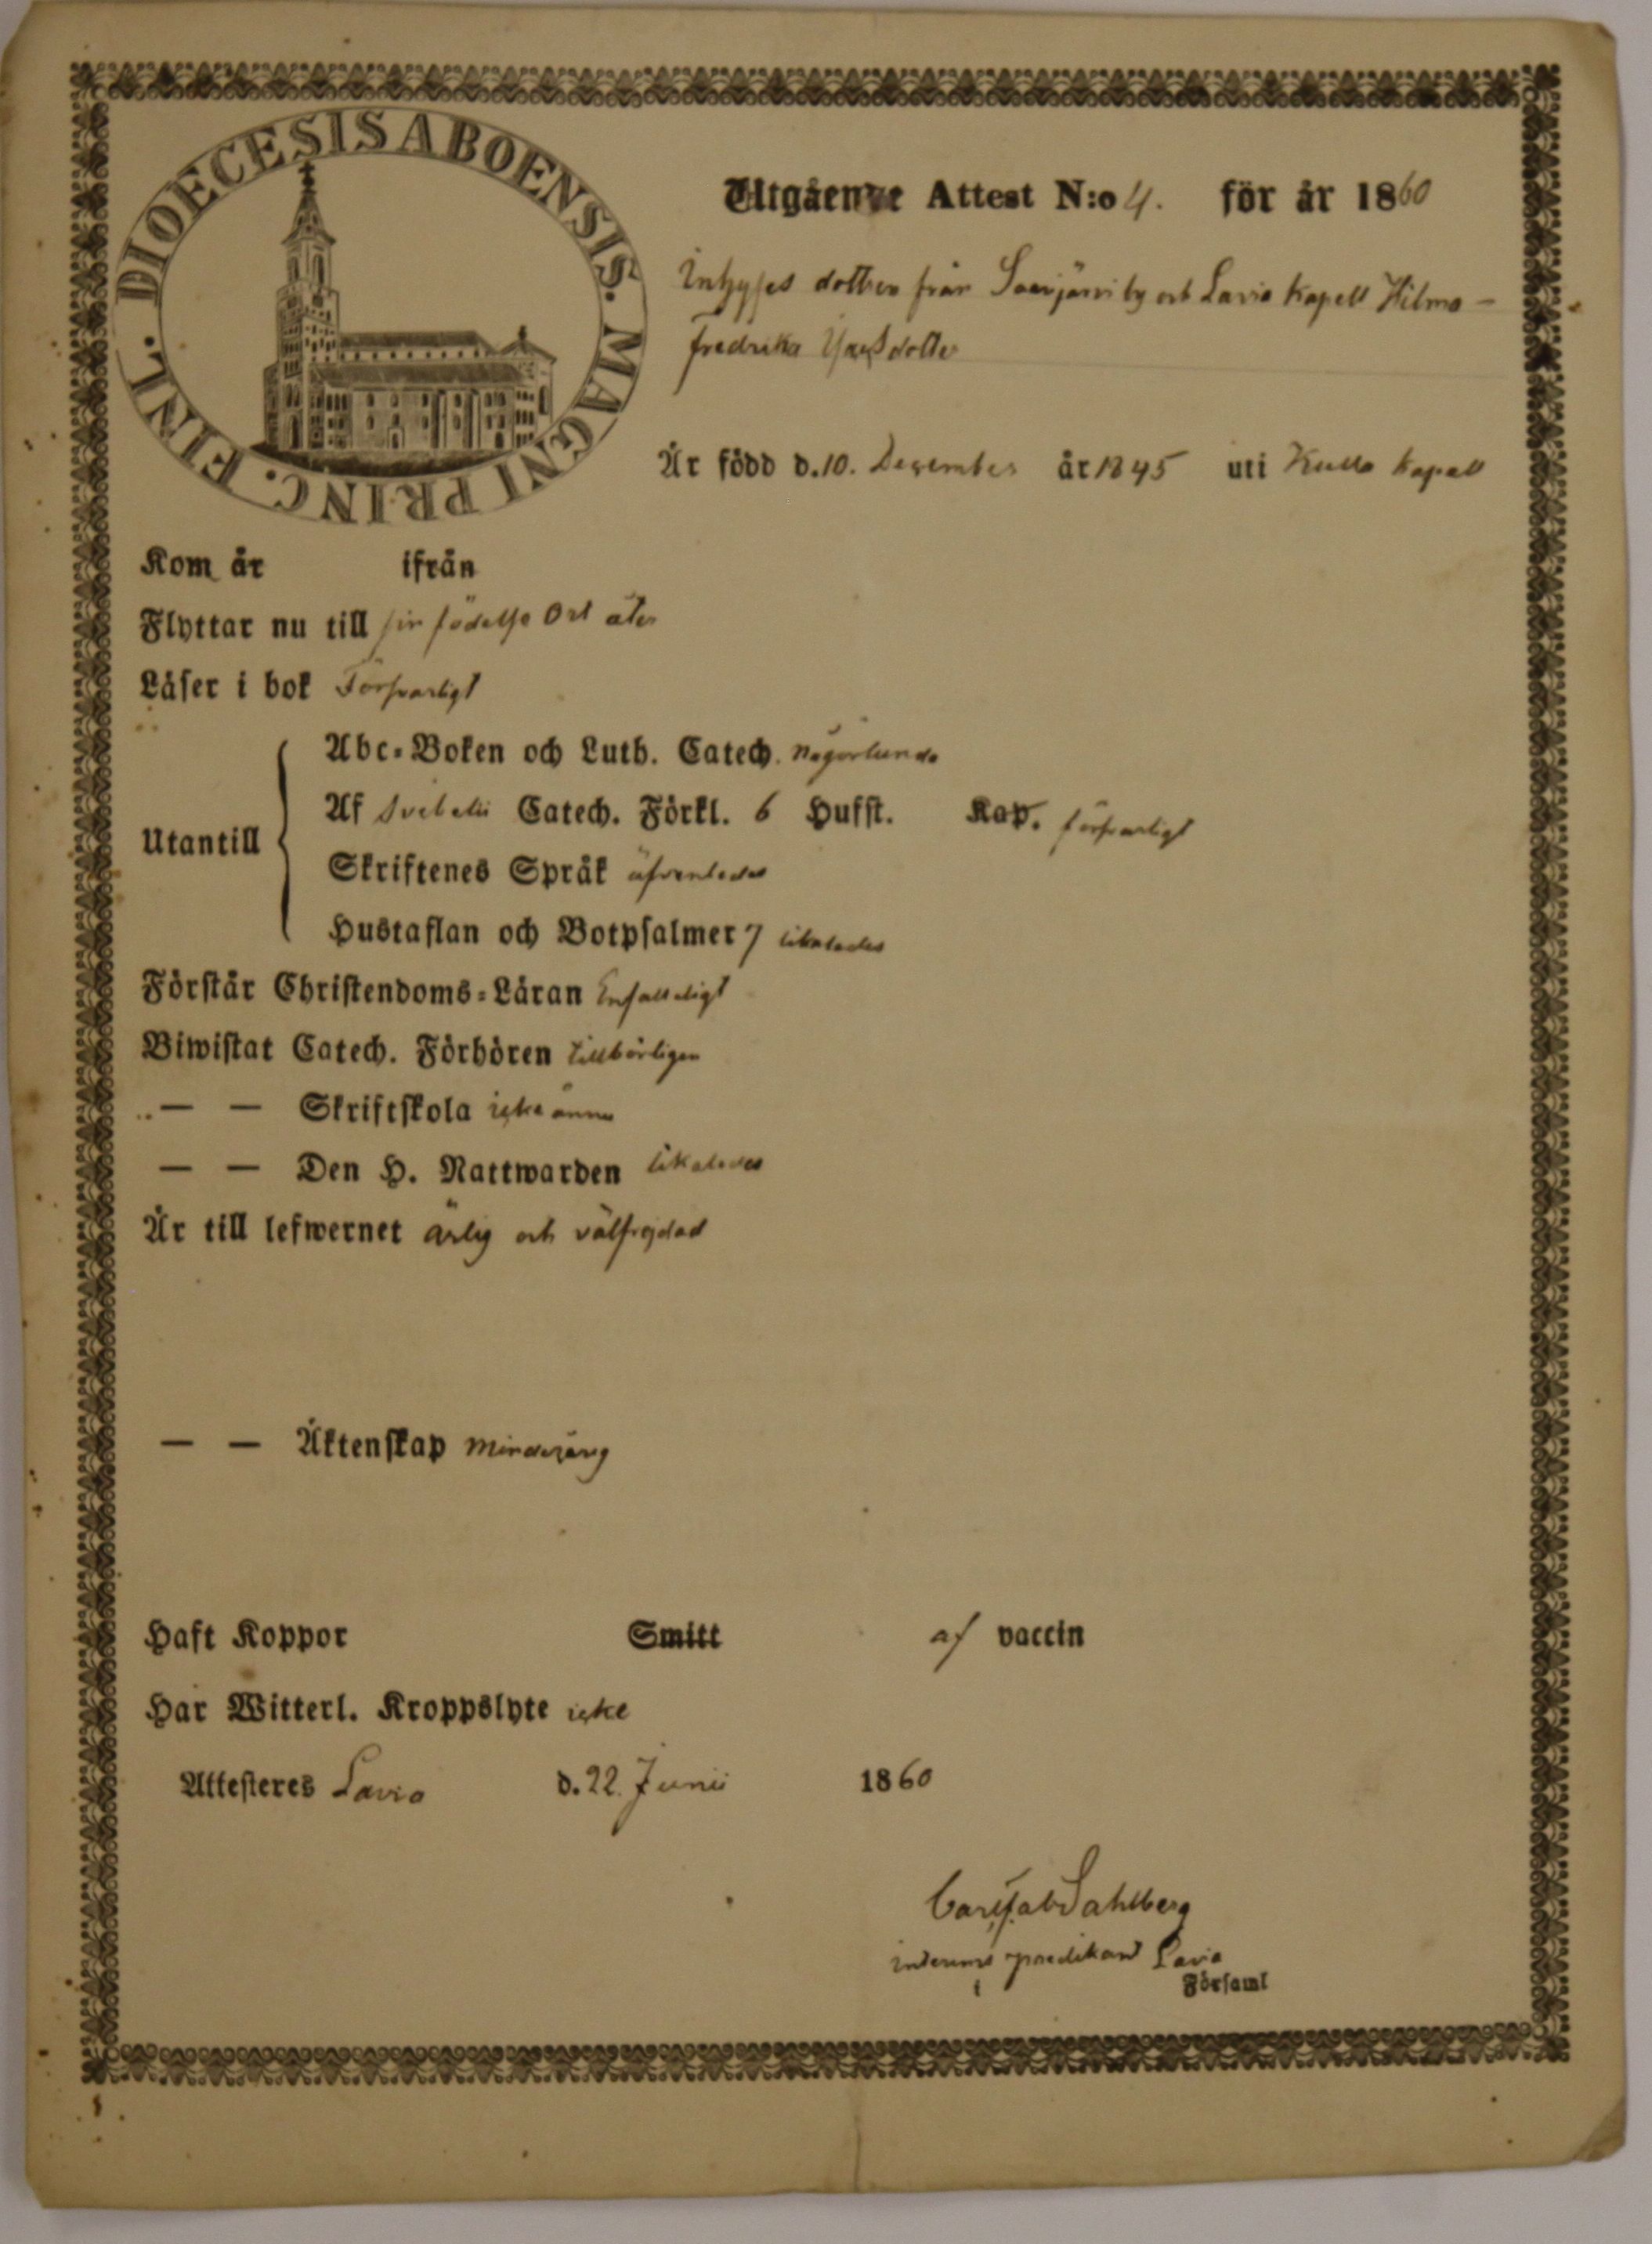 DIOECESIS ABOENSIS. MAGNI PRINC. FINL.
Utgående Attest N:o 4. för år 1860
Inhyses dotter från Saarijärvi by och Lavia Kapell Hilma-
Fredrika dotter
Är född d. 10. December år 1845 uti Kulla Kapell
Kom år ifrån
Flyttar nu till sin födelse Ort åter
Läser i bok Försvarligt
Abc-Boken och Luth. Catech. någorlunda
Utantill
Af Svebelii Catech. Förkl. 6 Hufst. Kap. försvarligt
Skriftenes Språk äfvenledes
Hustaflan och Botpsalmer 7 likaledes
Förstår Christendoms-Läran Enfaldeligt
Biwistat Catech. Förhören tillbörligen
— — Skriftskola icke ännu
— — Den H. Nattwarden likaledes
Är till lefwernet ärlig och välfrejdad
— — Äktenskap minderårig
Haft Koppor Smitt af vaccin
Har Witterl. Kroppslyte icke
Attesteres Lavia d. 22. Junii 1860
Carl Sahlberg
interims predikant Lavia
i Församl